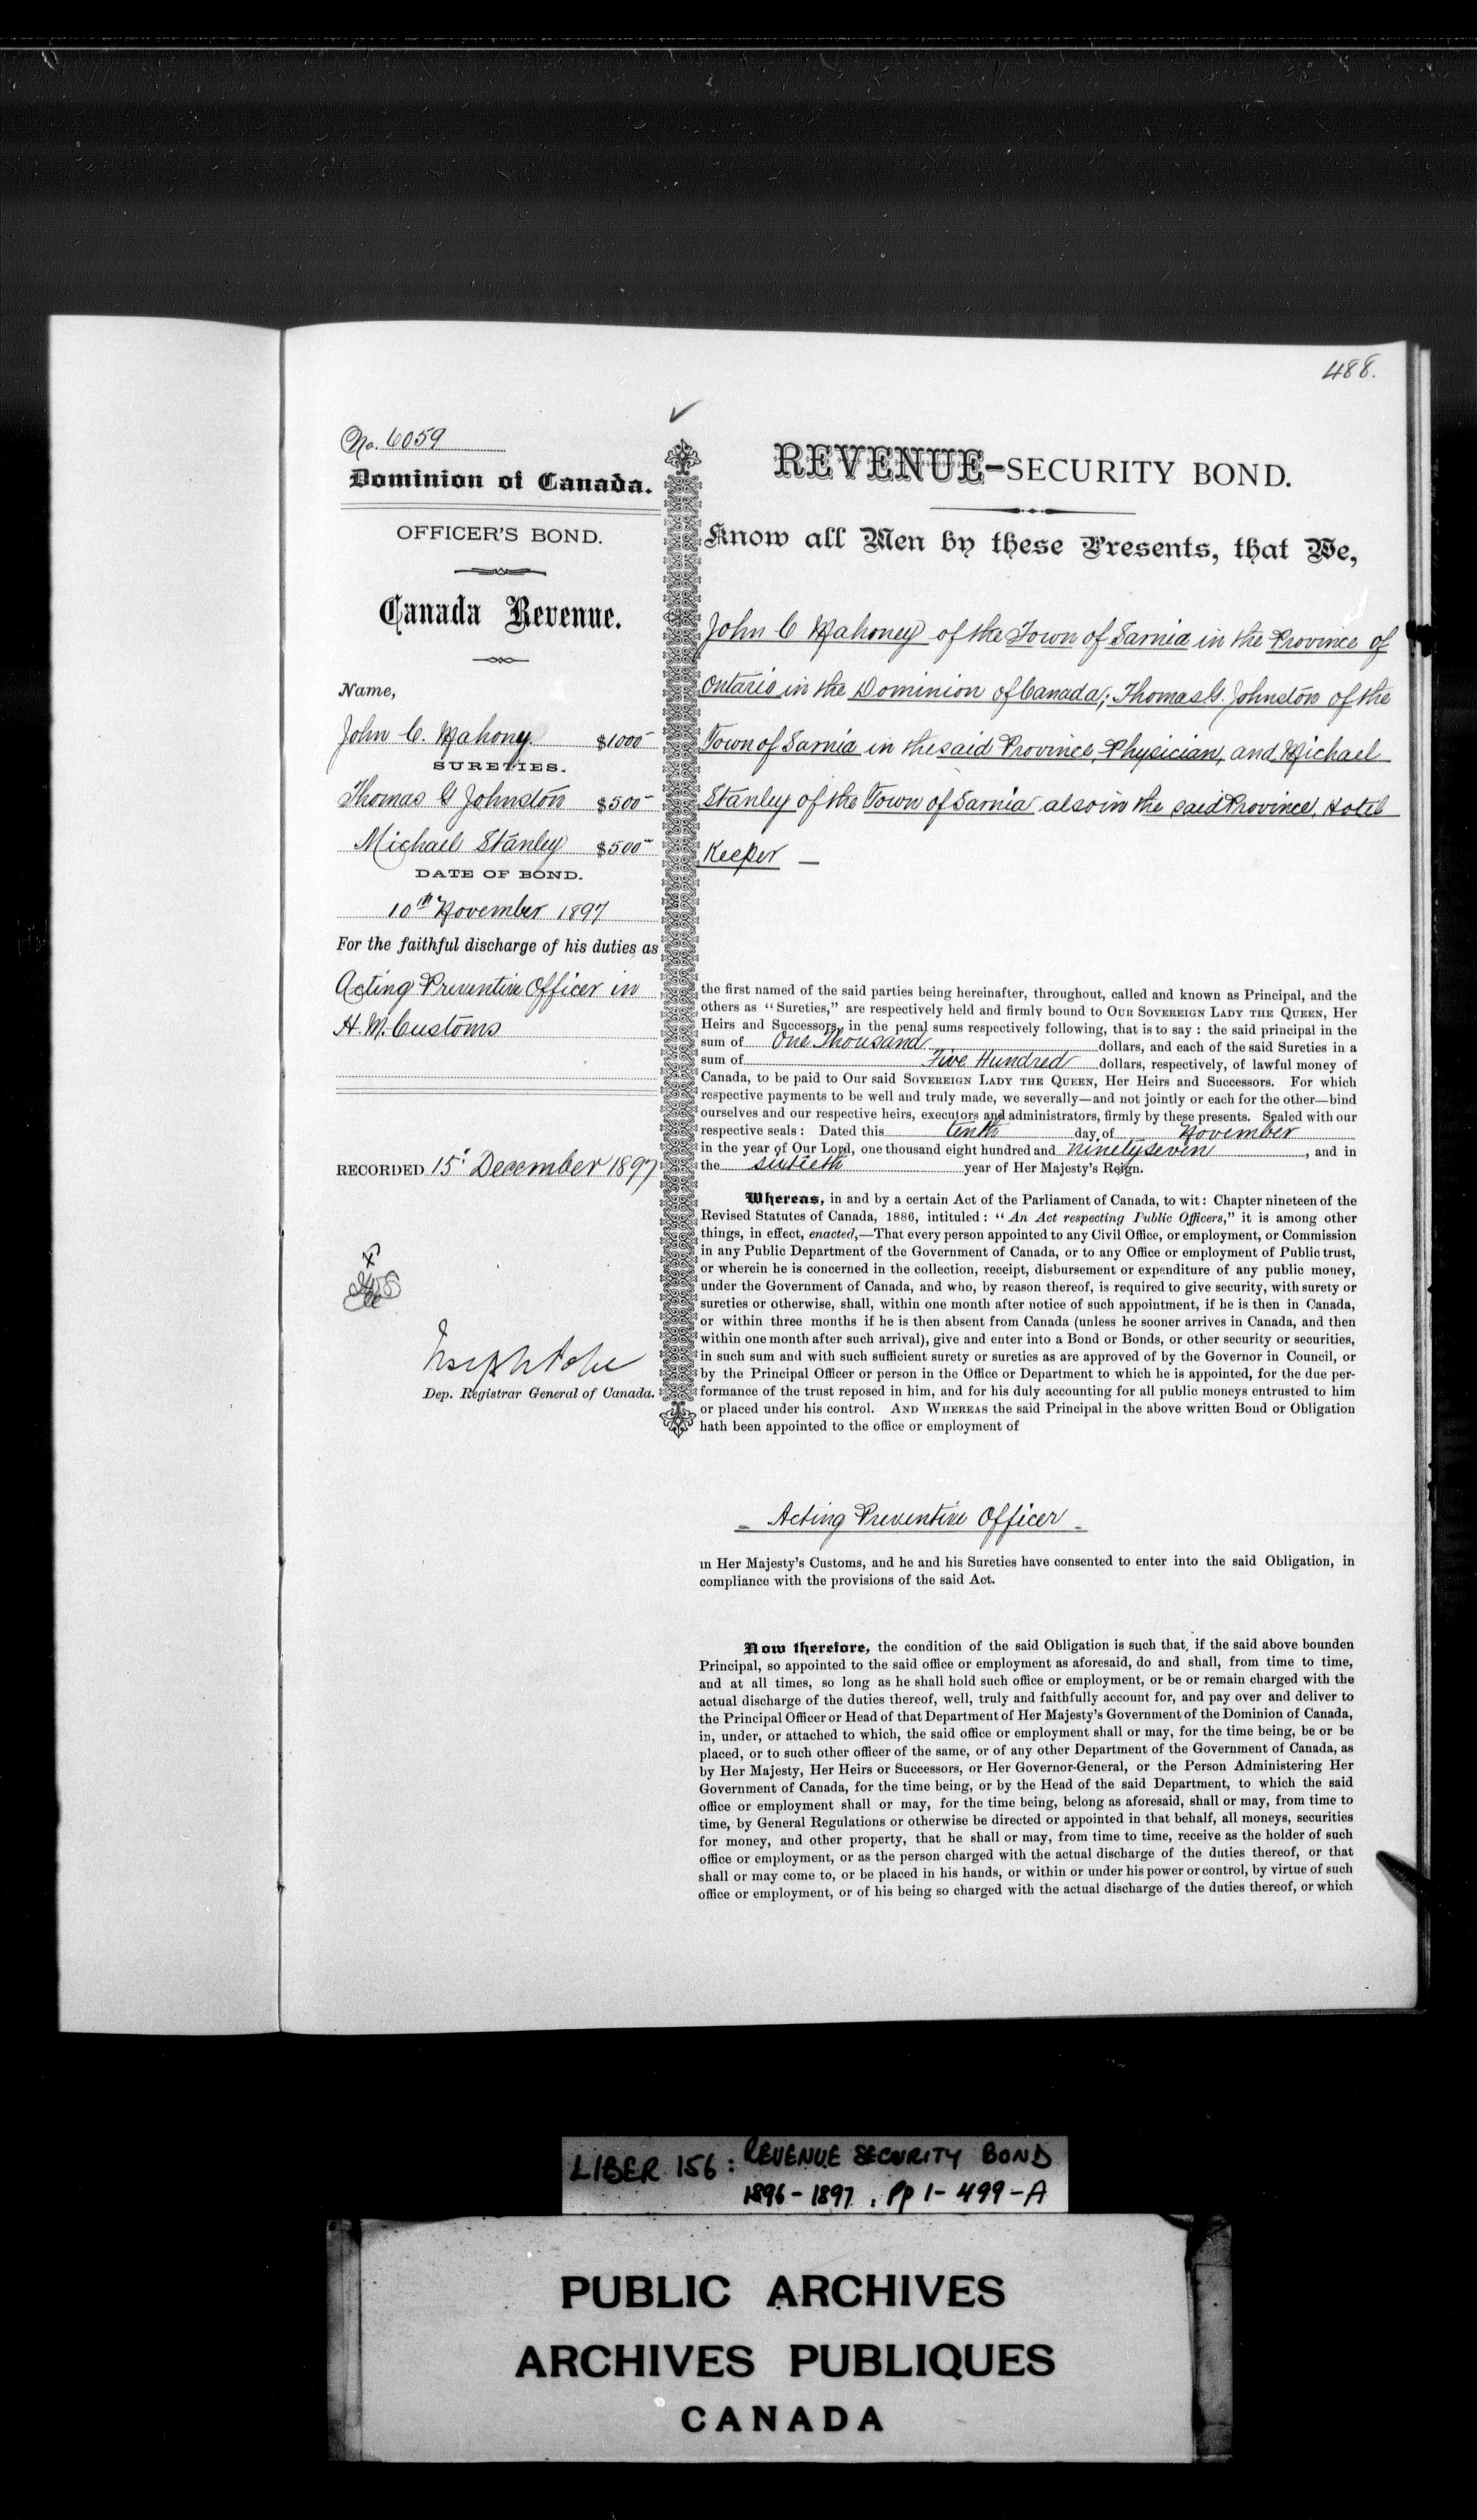 488.
No. 6059
Dominion of Canada.
OFFICER'S BOND.
Canada Revenue.
Name,
John C. Mahony $1000
SURETIES.
Thomas G Johnston $500
Michael Stanley $500
DATE OF BOND.
10th November 1897
For the faithful discharge of his duties as
Acting Preventive Officer in
H. M. Customs
RECORDED 15" December 1897
Joseph Pope
Dep. Registrar General of Canada.
REVENUE-SECURITY BOND.
Know all Men by these Presents, that We,
John C Mahoney of the Town of Sarnia in the Province of
Ontario in the Dominion of Canada; Thomas G. Johnston of the
Town of Sarnia in the said Province, Physician, and Michael
Stanley of the Town of Sarnia also in the said Province, Hotel
Keeper —
the first named of the said parties being hereinafter, throughout, called and known as Principal, and the
others as "Sureties," are respectively held and firmly bound to OUR SOVEREIGN LADY THE QUEEN, Her
Heirs and Successors, in the penal sums respectively following, that is to say : the said principal in the
sum of One Thousand dollars, and each of the said Sureties in a
sum of Five Hundred dollars, respectively, of lawful money of
Canada, to be paid to Our said SOVEREIGN LADY THE QUEEN, Her Heirs and Successors. For which
respective payments to be well and truly made, we severally—and not jointly or each for the other—bind
ourselves and our respective heirs, executors and administrators, firmly by these presents. Sealed with our
respective seals : Dated this tenth day of November
in the year of Our Lord, one thousand eight hundred and ninety seven, and in
the sixtieth year of Her Majesty's Reign.
Whereas, in and by a certain Act of the Parliament of Canada, to wit : Chapter nineteen of the
Revised Statutes of Canada, 1886, intituled : "An Act respecting Public Officers," it is among other
things, in effect, enacted,—That every person appointed to any Civil Office, or employment, or Commission
in any Public Department of the Government of Canada, or to any Office or employment of Public trust,
or wherein he is concerned in the collection, receipt, disbursement or expenditure of any public money,
under the Government of Canada, and who, by reason thereof, is required to give security, with surety or
sureties or otherwise, shall, within one month after notice of such appointment, if he is then in Canada,
or within three months if he is then absent from Canada (unless he sooner arrives in Canada, and then
within one month after such arrival), give and enter into a Bond or Bonds, or other security or securities,
in such sum and with such sufficient surety or sureties as are approved of by the Governor in Council, or
by the Principal Officer or person in the Office or Department to which he is appointed, for the due per-
formance of the trust reposed in him, and for his duly accounting for all public moneys entrusted to him
or placed under his control. AND WHEREAS the said Principal in the above written Bond or Obligation
hath been appointed to the office or employment of
- Acting Preventive Officer -
in Her Majesty's Customs, and he and his Sureties have consented to enter into the said Obligation, in
compliance with the provisions of the said Act.
Now therefore, the condition of the said Obligation is such that, if the said above bounden
Principal, so appointed to the said office or employment as aforesaid, do and shall, from time to time,
and at all times, so long as he shall hold such office or employment, or be or remain charged with the
actual discharge of the duties thereof, well, truly and faithfully account for, and pay over and deliver to
the Principal Officer or Head of that Department of Her Majesty's Government of the Dominion of Canada,
in, under, or attached to which, the said office or employment shall or may, for the time being, be or be
placed, or to such other officer of the same, or of any other Department of the Government of Canada, as
by Her Majesty, Her Heirs or Successors, or Her Governor-General, or the Person Administering Her
Government of Canada, for the time being, or by the Head of the said Department, to which the said
office or employment shall or may, for the time being, belong as aforesaid, shall or may, from time to
time, by General Regulations or otherwise be directed or appointed in that behalf, all moneys, securities
for money, and other property, that he shall or may, from time to time, receive as the holder of such
office or employment, or as the person charged with the actual discharge of the duties thereof, or that
shall or may come to, or be placed in his hands, or within or under his power or control, by virtue of such
office or employment, or of his being so charged with the actual discharge of the duties thereof, or which
LIBER 156 : REVENUE SECURITY BOND
1896-1897 . Pp 1-499-A
PUBLIC ARCHIVES
ARCHIVES PUBLIQUES
CANADA